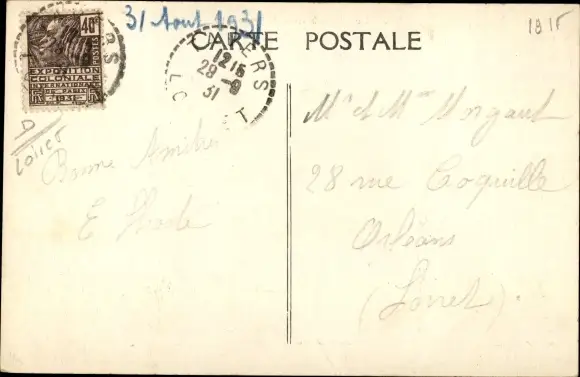 31 Aout 1931
18 1F
CARTE POSTALE
40c
POSTES
EXPOSITION
COLONIALE
INTERNATIONALE
DE PARIS
1931
12 15
28 -9
31
ERS
Loiret
Bonne Amitié
E
Mr et Mme
28 rue Coquille
Orléans
(Loiret).